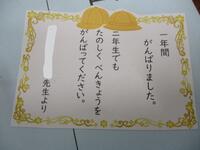 一年間
がんばりました。
二年生でも
たのしく べんきょうを
がんばってください。
先生より